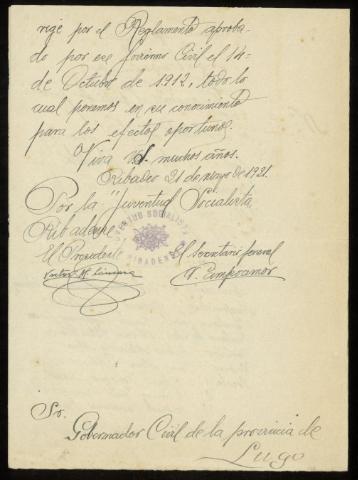 rige por el Reglamento aproba-
do por ese Govierno Civil el 14-
de Octubre de 1912, todo lo
cual ponemos en su conocimiento
para los efectos oportunos.
Viva V.S. muchos años.
Ribadeo 21 de mayo de 1921.
Por la "Juventud Socialista
Ribadense
JUVENTUD SOCIALISTA
RIBADENSE
El Presidente
El Secretario General
Sr.
Gobernador Civil de la provincia de
Lugo